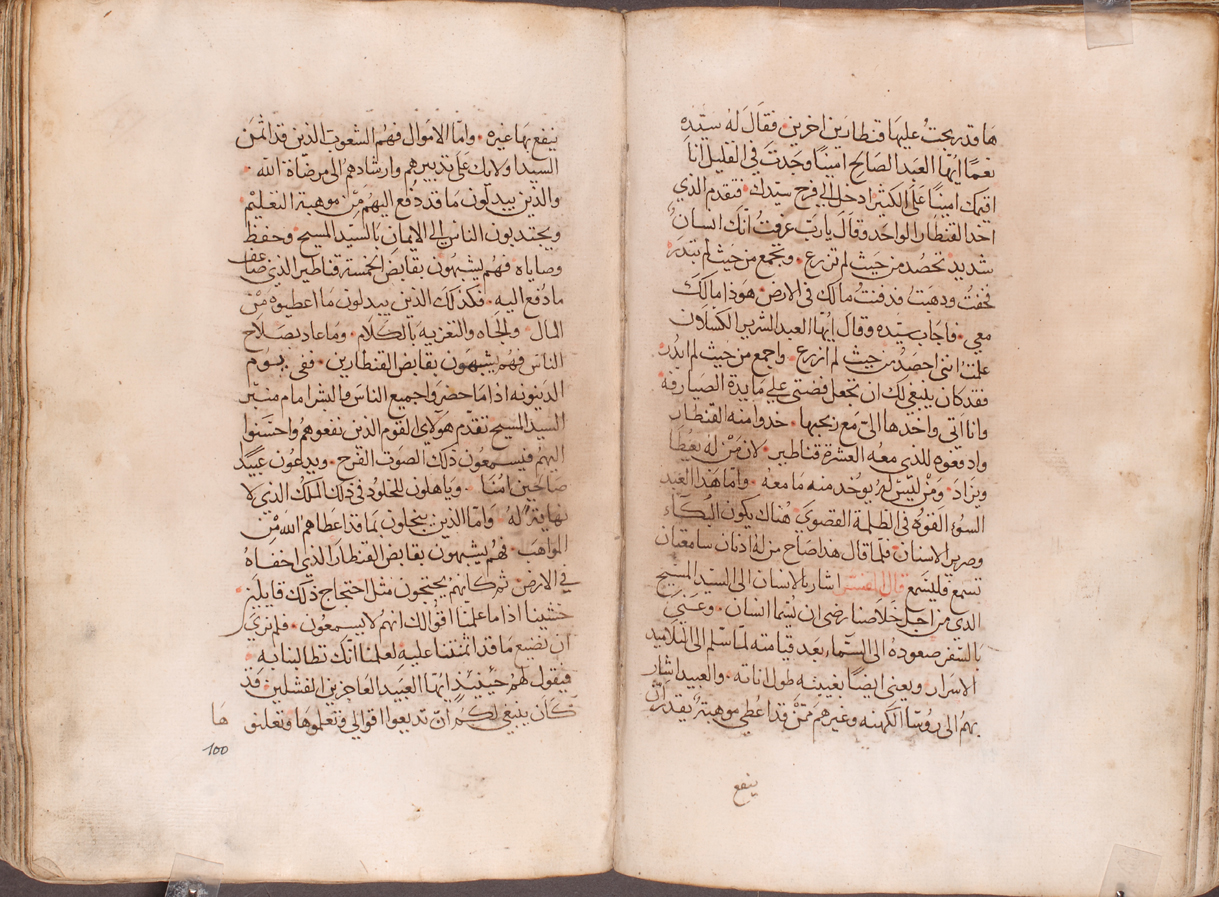 ها قد ربحت عليها قنطارين اخرين فقال له سيده
نعما ايها العبد الصالح امينا وجدت في القليل انا
اقيمك امينا على الكثير ادخل الى فرح سيدك فتقدم الذي
اخذ القنطار الواحد وقال يا رب عرفت انك انسان
شديد تحصد من حيث لم تزرع وتجمع من حيث لم تبدر
فخفت ودهبت قد فنت مالك في الارض هوذا مالك
معي فاجاب سيده وقال ايها العبد الشرير الكسلان
علمت انني احصد من حيث لم ازرع واجمع من حيث لم ابدر
فقد كان ينبغي لك ان تجعل فضتي على مايدة الصيارفه
وانا اتي واخدها الي مع ربحها خدوا منه القنطار
وادفعوه للذي معه العشرة قناطير لان من له يعطا
ويزاد ومن ليس له يوخد منه ما معه واما هذا العبد
السوء القوه في الظلمة القصوي هناك يكون البكاء
وصرير الاسنان فلما قال هدا صاح من له ادنان سامعتان
تسمع فليسمع قال المفسر اشار بالانسان الى السيد المسيح
الدي من اجل خلاصنا رضي ان يسما انسان وعني
بالسفر صعوده الى السماء بعد قيامته لما سلم الى التلاميد
الاسرار ويعني ايضا بغيبته طول اناته والعبيد اشار
بهم الى روسا الكهنه وغيرهم ممن قد اعطي موهبة يقدر ان
ينفع
ينفع بها غيره واما الاموال فهم الشعوب الذين قد اتمن
السيد اولايك على تدبيرهم وارشادهم الى مرضاة الله
والذين يبدلون ما قد دفع اليهم من موهبة التعليم
ويجتدبون الناس الى الايمان بالسيد المسيح وحفظ
وصاياه فهم يشبهون بقابض الخمسة قناطير الذي ضاعف
ما دفع اليه فكذلك الذين يبدلون ما اعطيوه من
المال والجاه والتعزيه بالكلام وما عاد بصلاح
الناس فهم يشبهون بقابض القنطارين ففي يوم
الدينونه اذا ما حضروا جميع الناس والبشر امام منبر
السيد المسيح تقدم هولاي القوم الذين نفعوهم واحسنوا
اليهم فيسمعون ذلك الصوت الفرح ويدعون عبيدا
صالحين امنا وياهلون للخلود في ذلك الملك الذي لا
نهاية له واما الذين يبخلون بما قد اعطاهم الله من
المواهب فهم يشبهون بقابض القنطار الذي اخفاه
في الارض ثم كانهم يحتجون مثل احتجاج ذلك قايلين
خشينا اذا ما علمنا اقوالك انهم لا يسمعون فلم نري
ان نضيع ما قد اتمنتنا عليه لعلمنا انك تطالبنا به
فيقول لهم حينيد ايها العبيد العاجزين الفشلين قد
كان ينبغي لكم ان تديعوا اقوالي وتعلموها وتعلنو
ها
100